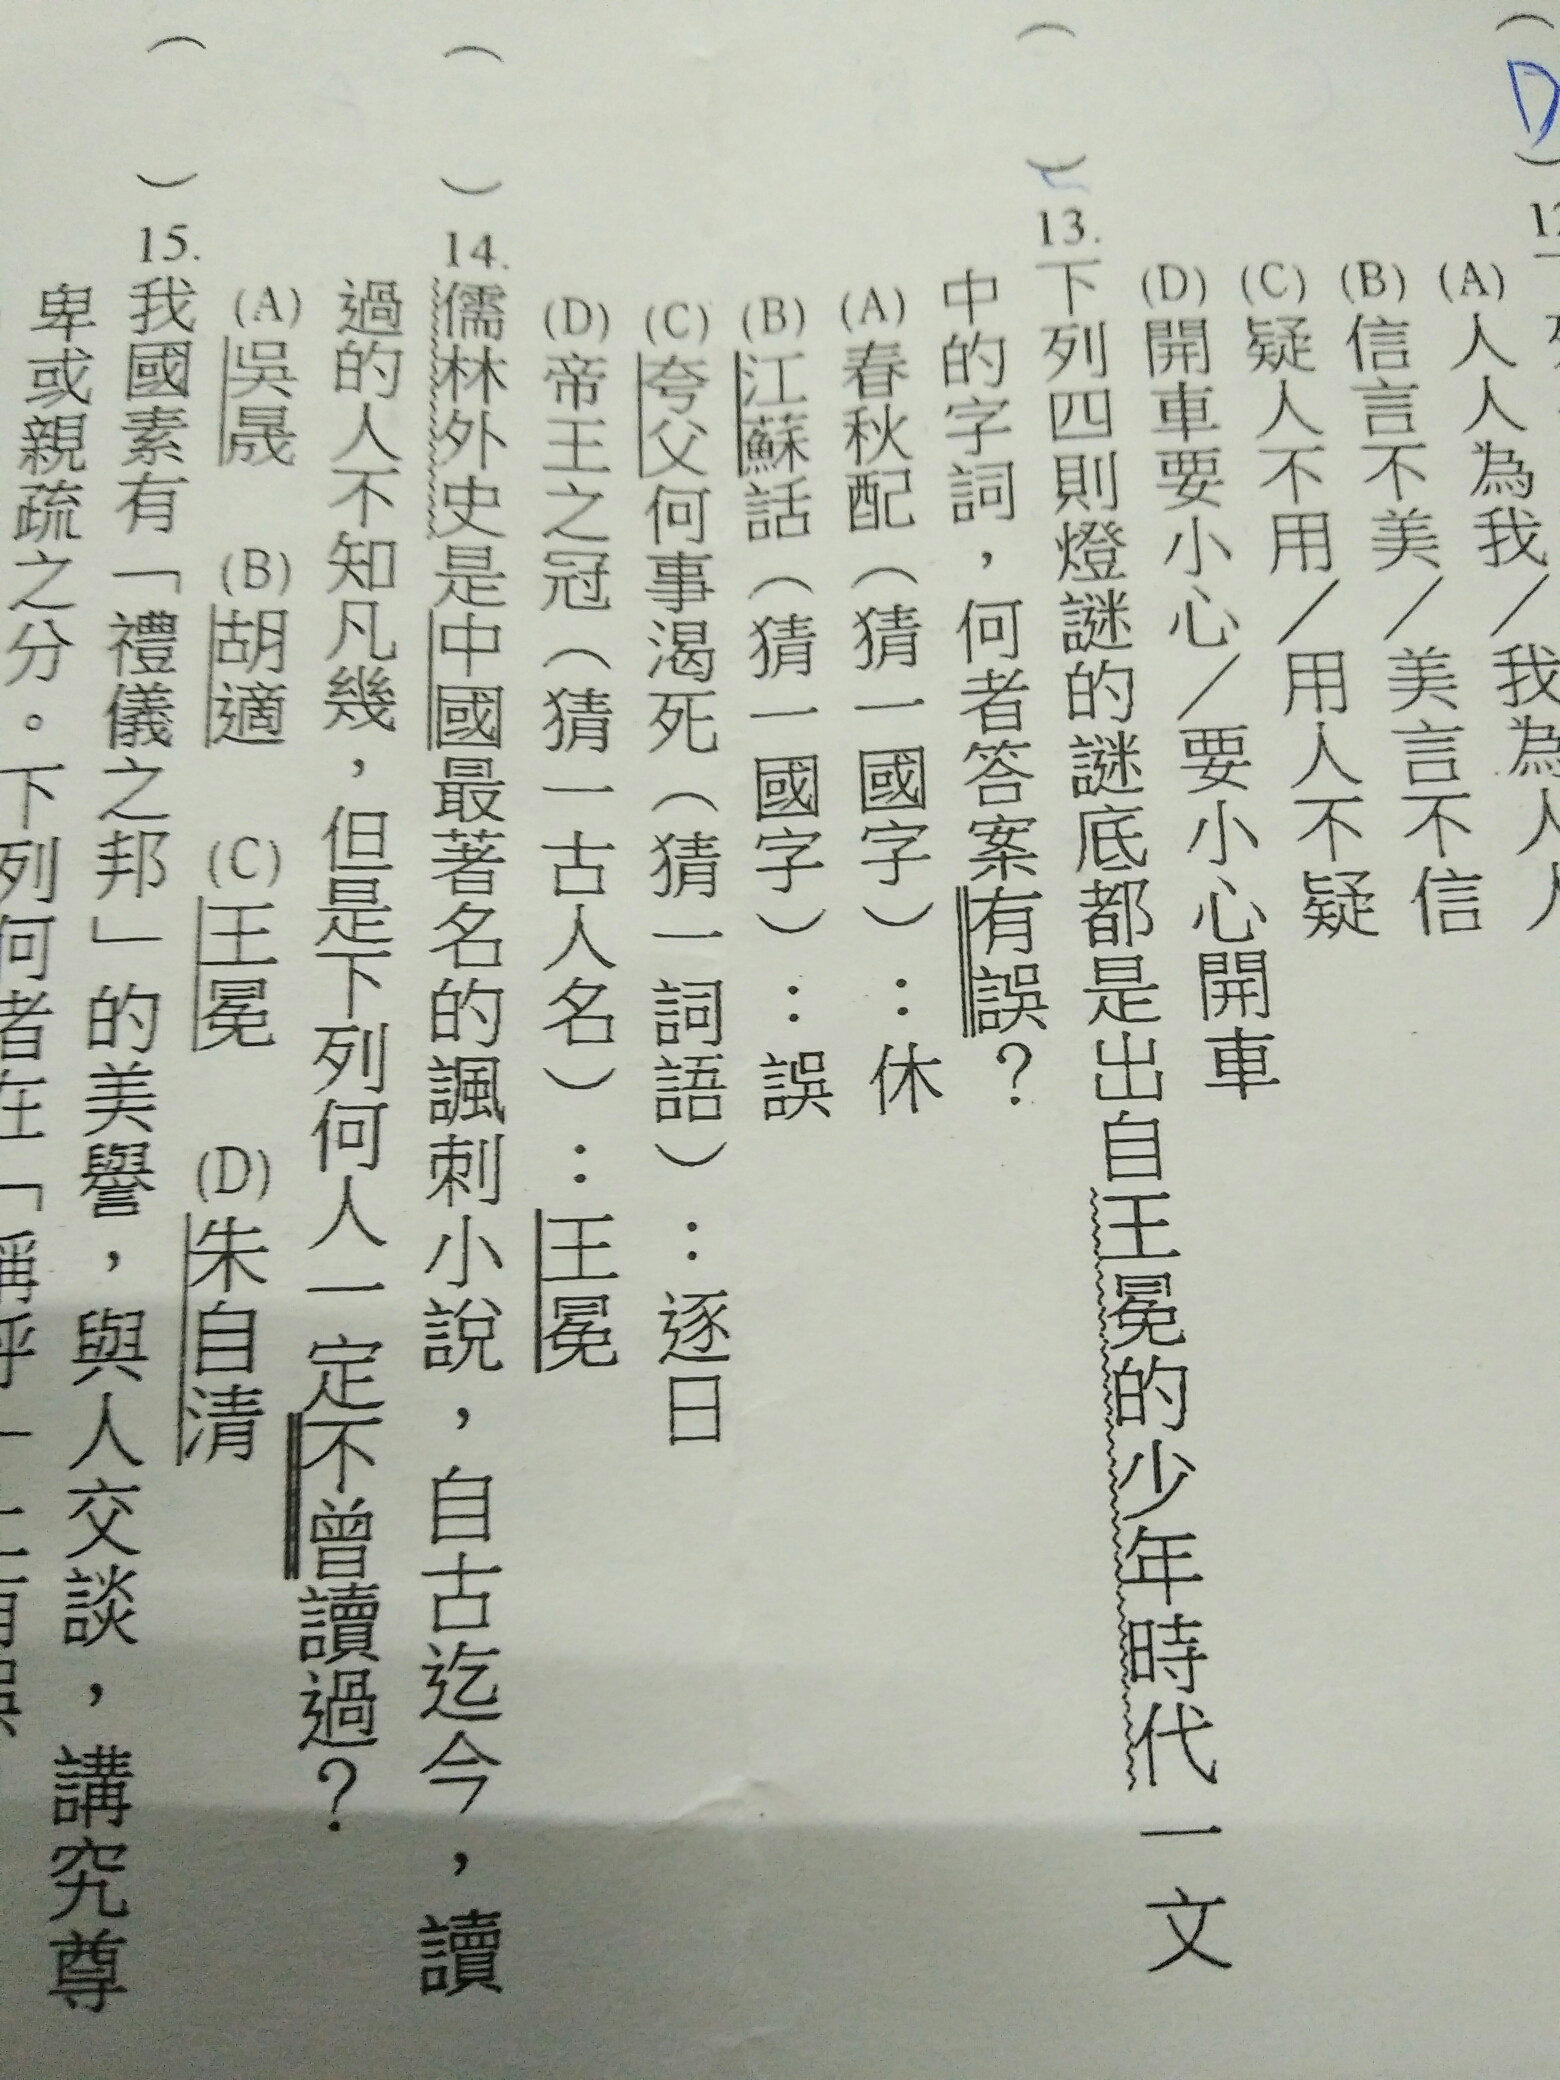 ( D ) 12.
(A)人人為我／我為人人
(B)信言不美／美言不信
(C)疑人不用／用人不疑
(D)開車要小心／要小心開車
(　) 13.下列四則燈謎的謎底都是出自王冕的少年時代一文
中的字詞，何者答案有誤？
(A)春秋配（猜一國字）：休
(B)江蘇話（猜一國字）：誤
(C)夸父何事渴死（猜一詞語）：逐日
(D)帝王之冠（猜一古人名）：王冕
(　) 14.儒林外史是中國最著名的諷刺小說，自古迄今，讀
過的人不知凡幾，但是下列何人一定不曾讀過？
(A)吳晟 (B)胡適 (C)王冕 (D)朱自清
(　) 15.我國素有「禮儀之邦」的美譽，與人交談，講究尊
卑或親疏之分。下列何者在「稱呼